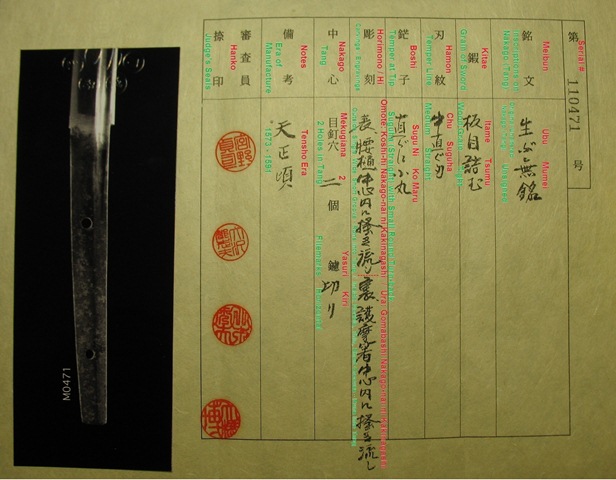 Serial#
第 110471 号
銘文
Meibun
Inscriptions on
Nakago (Tang)
生ぶ無銘
Ubu Mumei
鍛
Kitae
Grain of Sword
板目詰む
Itame Tsumu
刃紋
Hamon
Temper Line
中直ぐ刃
Chu Suguha
Medium Straight
鋩子
Boshi
Temper at Tip
直ぐに小丸
Sugu Ni Ko Maru
彫刻
Horimono / Hi
Carvings, Engravings
表腰樋中心内に掻き流し 裏護摩箸中心内に掻き流し
Omote: Koshi-hi Nakago-nai ni Kakinagashi Ura: Gomabashi Nakago-nai ni
中心
Nakago
Tang
目釘穴 二 個
Mekugiana 2
2 Holes in Tang
鑢 切り
Yasuri Kiri
Filemarks
備考
Notes
Era of
Manufacture
天正頃
Tensho Era
1573 - 1591
審査員
捺印
Hanko
Judge's Seals
M0471